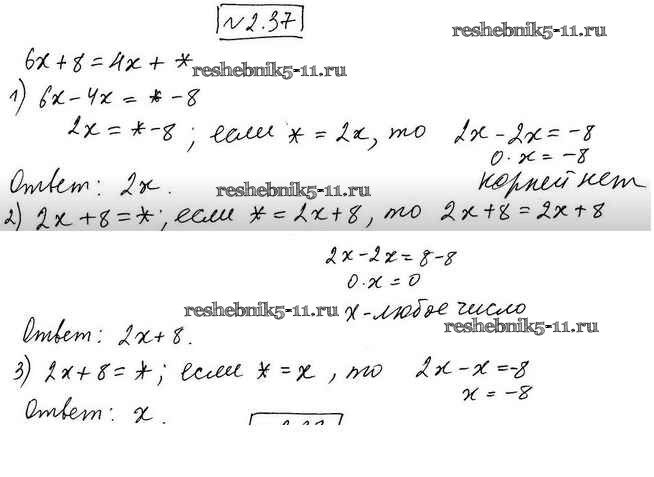 №2.37
reshebnik5-11.ru
6x+8=4x+*
reshebnik5-11.ru
1) 6x-4x=*-8
2x=*-8; если *=2x, то 2x-2x=-8
0·x=-8
Ответ: 2x. reshebnik5-11.ru корней нет
2) 2x+8=*; если *=2x+8, то 2x+8=2x+8
2x-2x=8-8
0·x=0
reshebnik5-11.ru x-любое число
Ответ: 2x+8. reshebnik5-11.ru
3) 2x+8=*; если *=x, то 2x-x=-8
x=-8
Ответ: x.